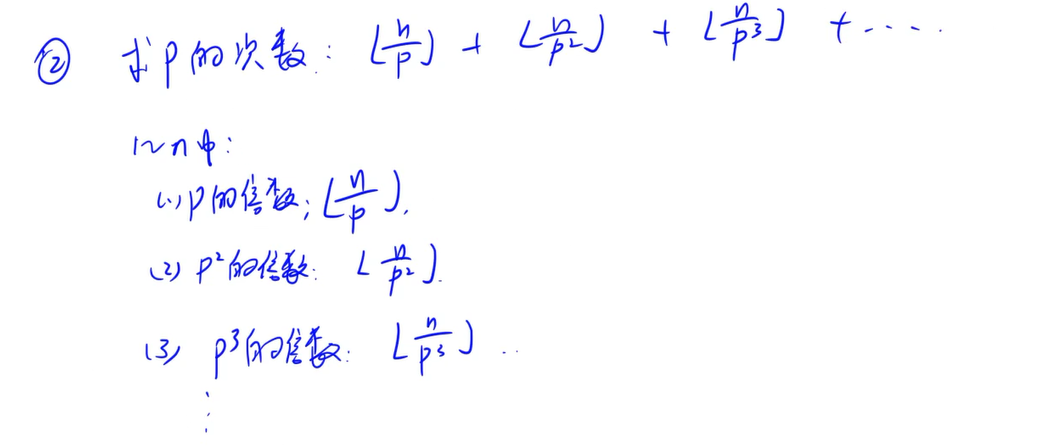 ② 求p的次数: ⌊n/p⌋ + ⌊n/p²⌋ + ⌊n/p³⌋ + ....
1~n中:
(1) p的倍数: ⌊n/p⌋.
(2) p²的倍数: ⌊n/p²⌋.
(3) p³的倍数: ⌊n/p³⌋ ..
⋮